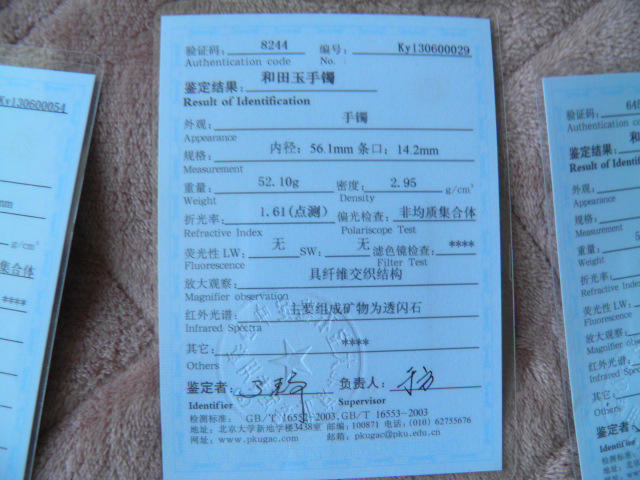 Ky130600054
mm
g/cm³
集合体
****
验证码: 8244 编号: Ky130600029
Authentication code No.
鉴定结果: 和田玉手镯
Result of Identification
外观: 手镯
Appearance
规格: 内径: 56.1mm 条口: 14.2mm
Measurement
重量: 52.10g 密度: 2.95 g/cm³
Weight Density
折光率: 1.61(点测) 偏光检查: 非均质集合体
Refractive Index Polariscope Test
荧光性 LW: 无 SW: 无 滤色镜检查: ****
Fluorescence Filter Test
放大观察: 具纤维交织结构
Magnifier observation
红外光谱: 主要组成矿物为透闪石
Infrared Spectra
其它: ****
Others
鉴定者: 负责人:
Identifier Supervisor
检测标准: GB/T 16552-2003,GB/T 16553-2003
地址: 北京大学新地学楼3438室 邮编: 100871 电话:(010) 62755676
网址: www.pkugac.com 邮箱: pkugac@pku.edu.cn
验证码: 64
Authentication
鉴定结果:
Result of Identi
外观:
Appearance
规格:
Measurement
重量: 5
Weight
折光率:
Refractive Inde
荧光性 LW:
Fluorescence
放大观察:
Magnifier obs
红外光谱:
Infrared Spec
其它:
Others
鉴定者:
Identifier
检测标准:
地址: 北京
网址: www